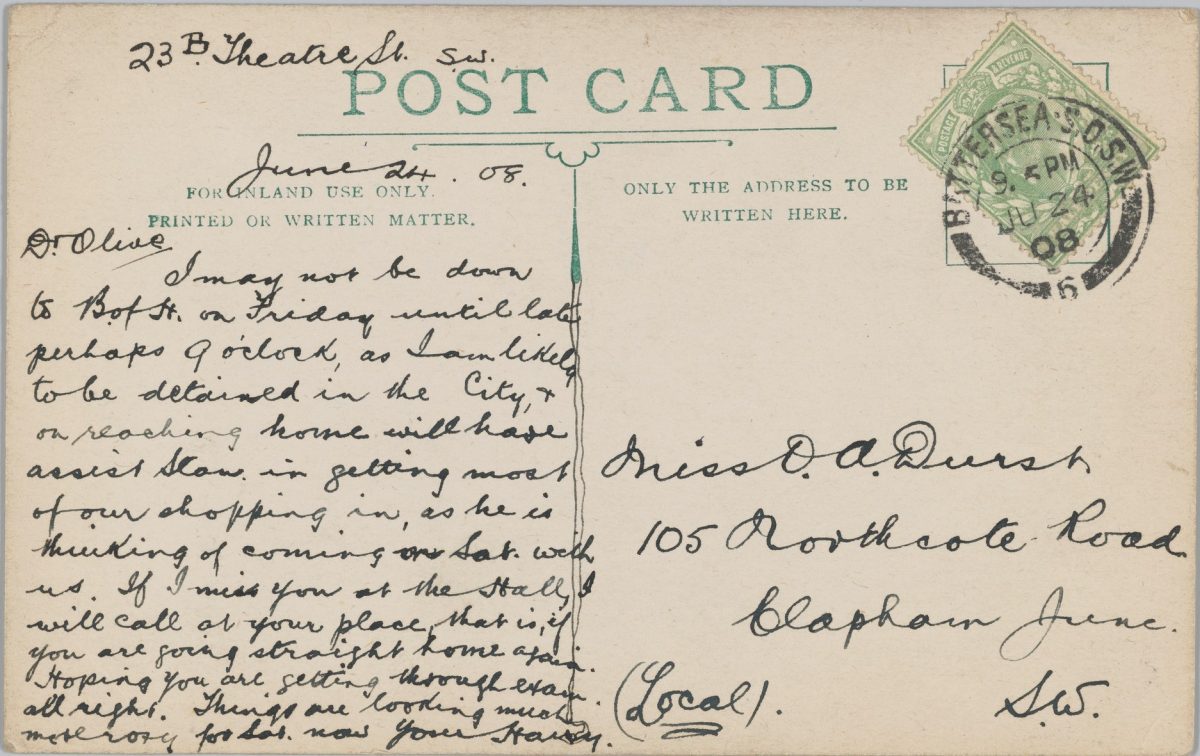 23B Theatre St. S.W.
POST CARD
June 24. 08.
FOR INLAND USE ONLY.
PRINTED OR WRITTEN MATTER.
ONLY THE ADDRESS TO BE
WRITTEN HERE.
POSTAGE & REVENUE
BATTERSEA.S.O.S.W.
9. 5 PM
JU 24
08
6
Dr Olive
I may not be down
to B.of H. on Friday until late
perhaps 9 o'clock, as I am likely
to be detained in the City, +
on reaching home will have
assist Stan. in getting most
of our shopping in, as he is
thinking of coming on Sat. with
us. If I miss you at the Hall, I
will call at your place, that is, if
you are going straight home again.
Hoping you are getting through exam.
all right. Things are looking much
more rosy for Sat. now Your Harry.
Miss O. A. Durst
105 Northcote Road
Clapham Junc.
(Local). S.W.